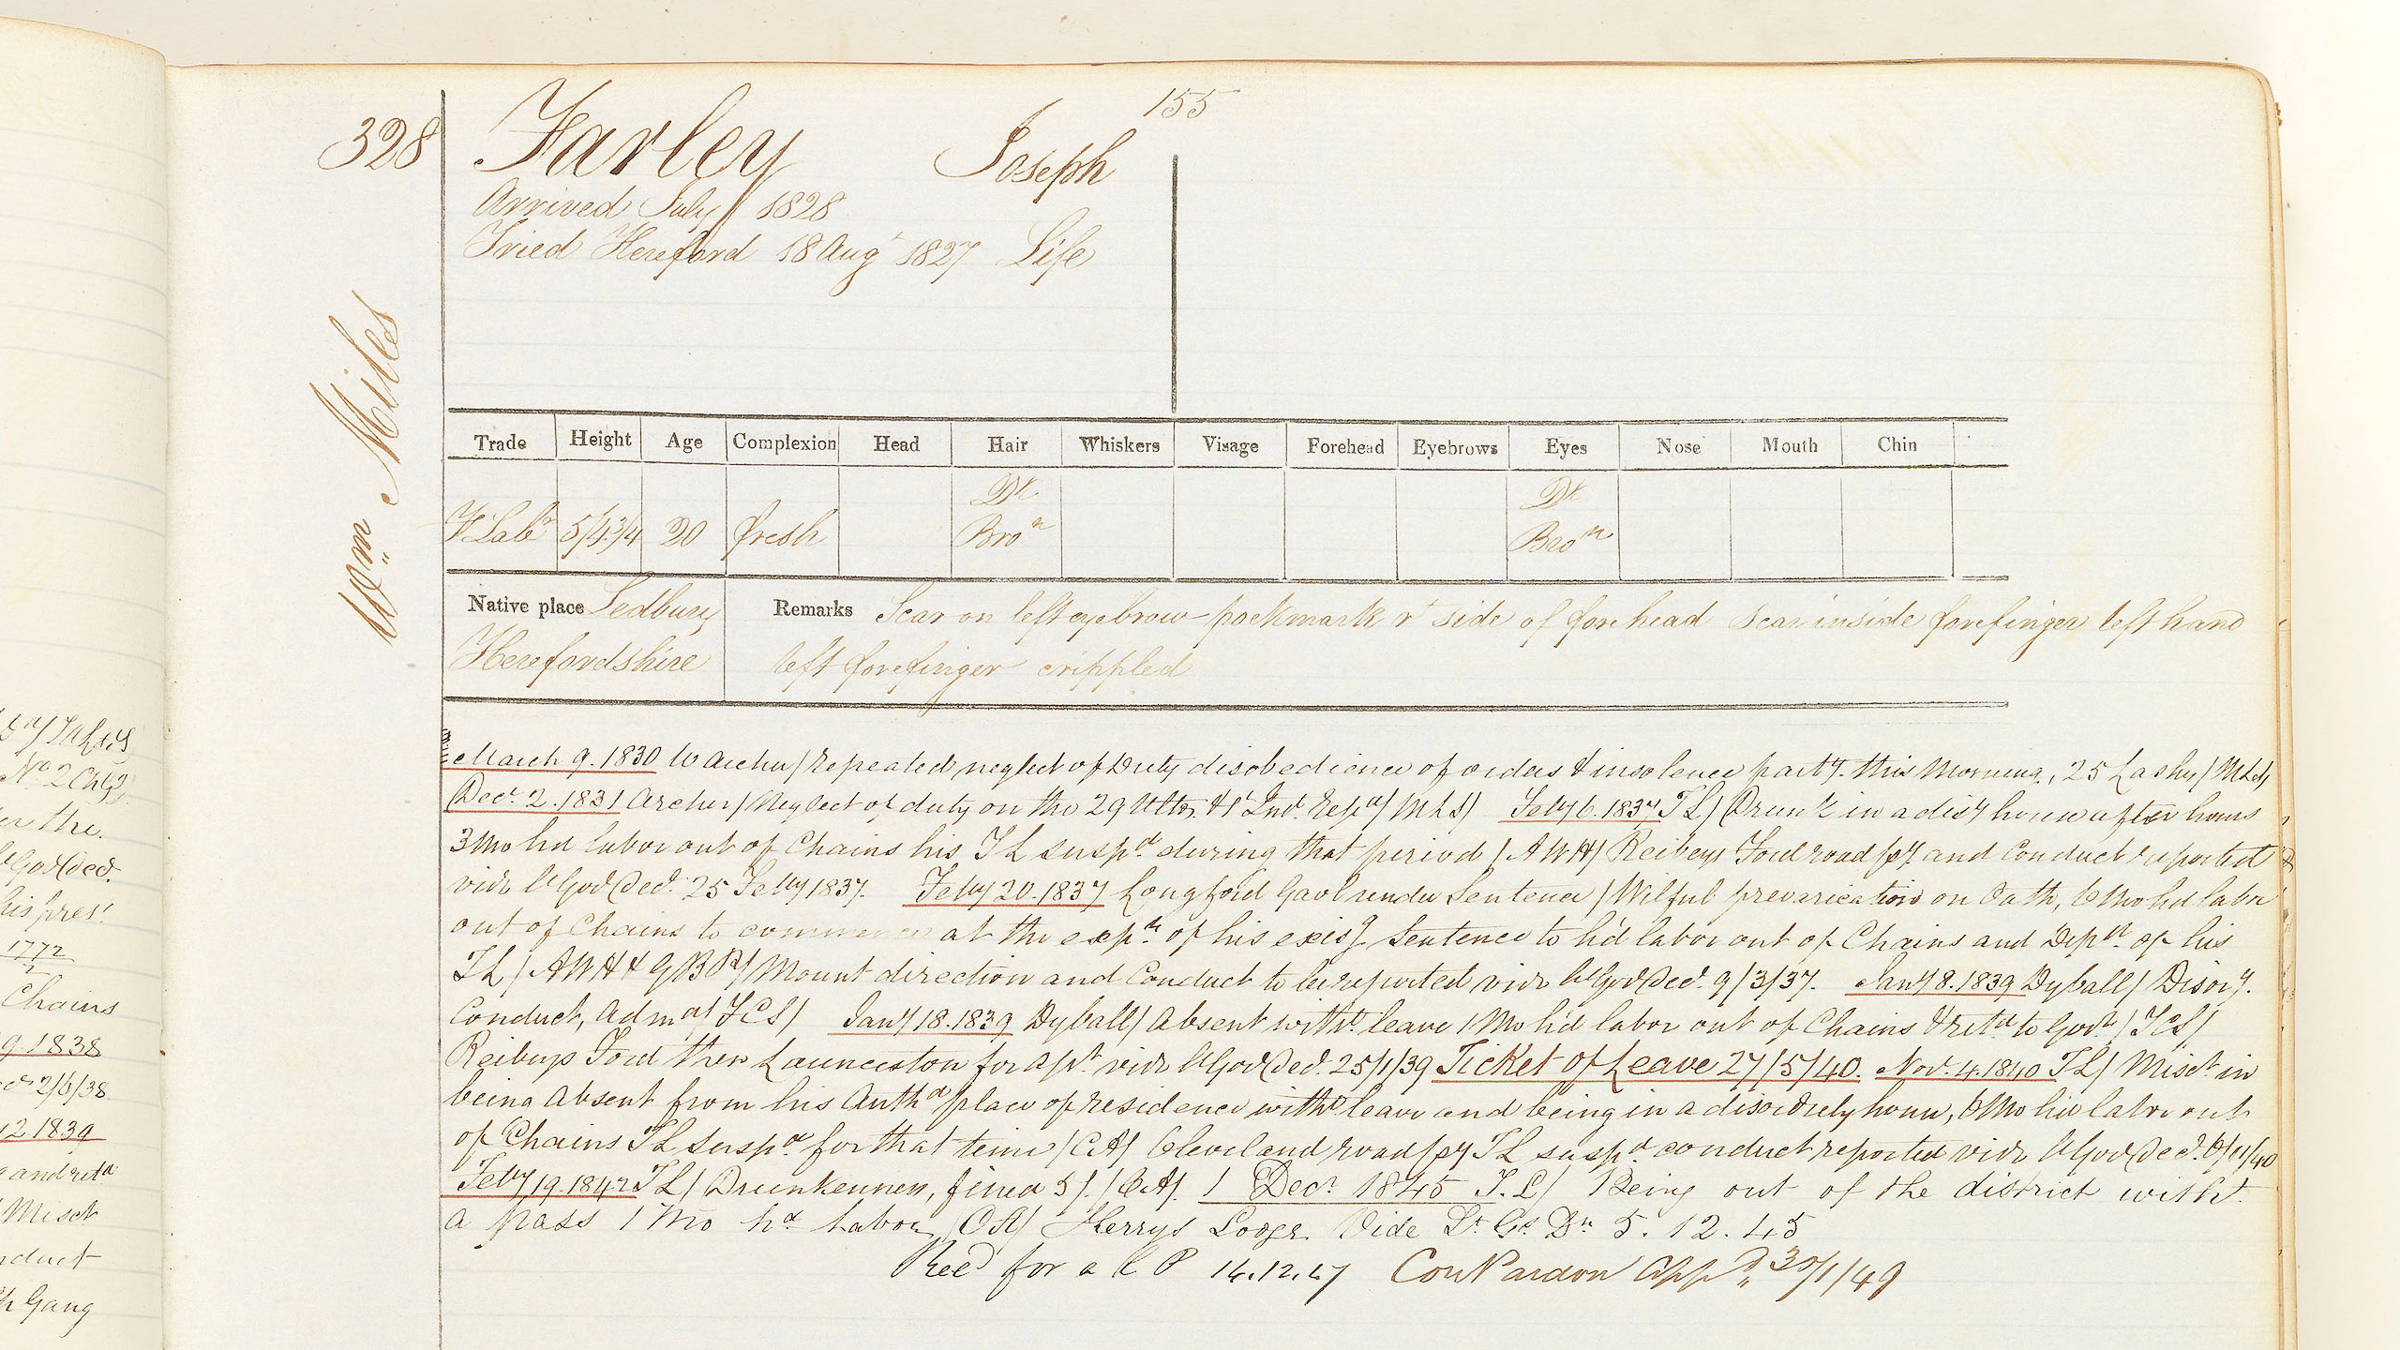 155
328 Farley Joseph
Arrived July 1828
Tried Hereford 18 Augt 1827 Life
Wm Miles
Trade Height Age Complexion Head Hair Whiskers Visage Forehead Eyebrows Eyes Nose Mouth Chin
Dk Dk
F Labr 5/4 3/4 20 fresh Bron Bron
Native place Ledbury Remarks Scar on left eyebrow pockmark rt side of forehead scar inside forefinger left hand
Herefordshire left forefinger crippled
March 9. 1830 W Archer / repeated neglect of Duty disobedience of orders & insolence party. this Morning, 25 Lashes /
Decr. 2. 1831 Archer / Neglect of duty on the 29 Ulto. & 1t Inst. Repd / MLS / Feby 6. 1837 TL / Drunk in a disy house after hours
3 Mo hd labor out of Chains his TL suspd. during that period / AWH / Reibeys Ford road py and Conduct reported
vide Lt Gov Decd. 25 Feby 1837. Feby 20. 1837 Longford Gaol under Sentence / Wilful prevarication on Oath, 6 Mo hd labor
out of Chains to commence at the expn of his existg Sentence to hd labor out of Chains and Depn. of his
TL / AWH & / Mount direction and Conduct to be reported vide Lt Gov Decd. 9/3/37. Jany 8. 1839 Dyball / Disory.
Conduct, Admd / TCS / Jany 18. 1839 Dyball / Absent witht leave 1 Mo hd labor out of Chains & retd to Govt / TCS /
Reibeys Ford then Launceston for apt vide Lt Gov Decd. 25/1/39 Ticket of Leave 27/5/40. Novr. 4. 1840 TL / Misct in
being Absent from his Authd place of residence witht leave and being in a disorderly house, 6 Mo hd labor out
of Chains TL suspd. for that time / CA / Cleveland road py TL suspd. conduct reported vide Lt Gov Decd. 6/11/40
Feby 19. 1842 TL / Drunkenness, fined 5/. / CA /. 1 Decr 1845 T.L / Being out of the district witht
a pass 1 Mo hd Labor / Vide Lt Gs Dn 5. 12. 45
Recd for a C P 14.12.47 Con Pardon appd 30/1/49
No 2 Chg
1772
Chains
9. 1838
2/6/38
12 1839
and retd
Misct
Gang